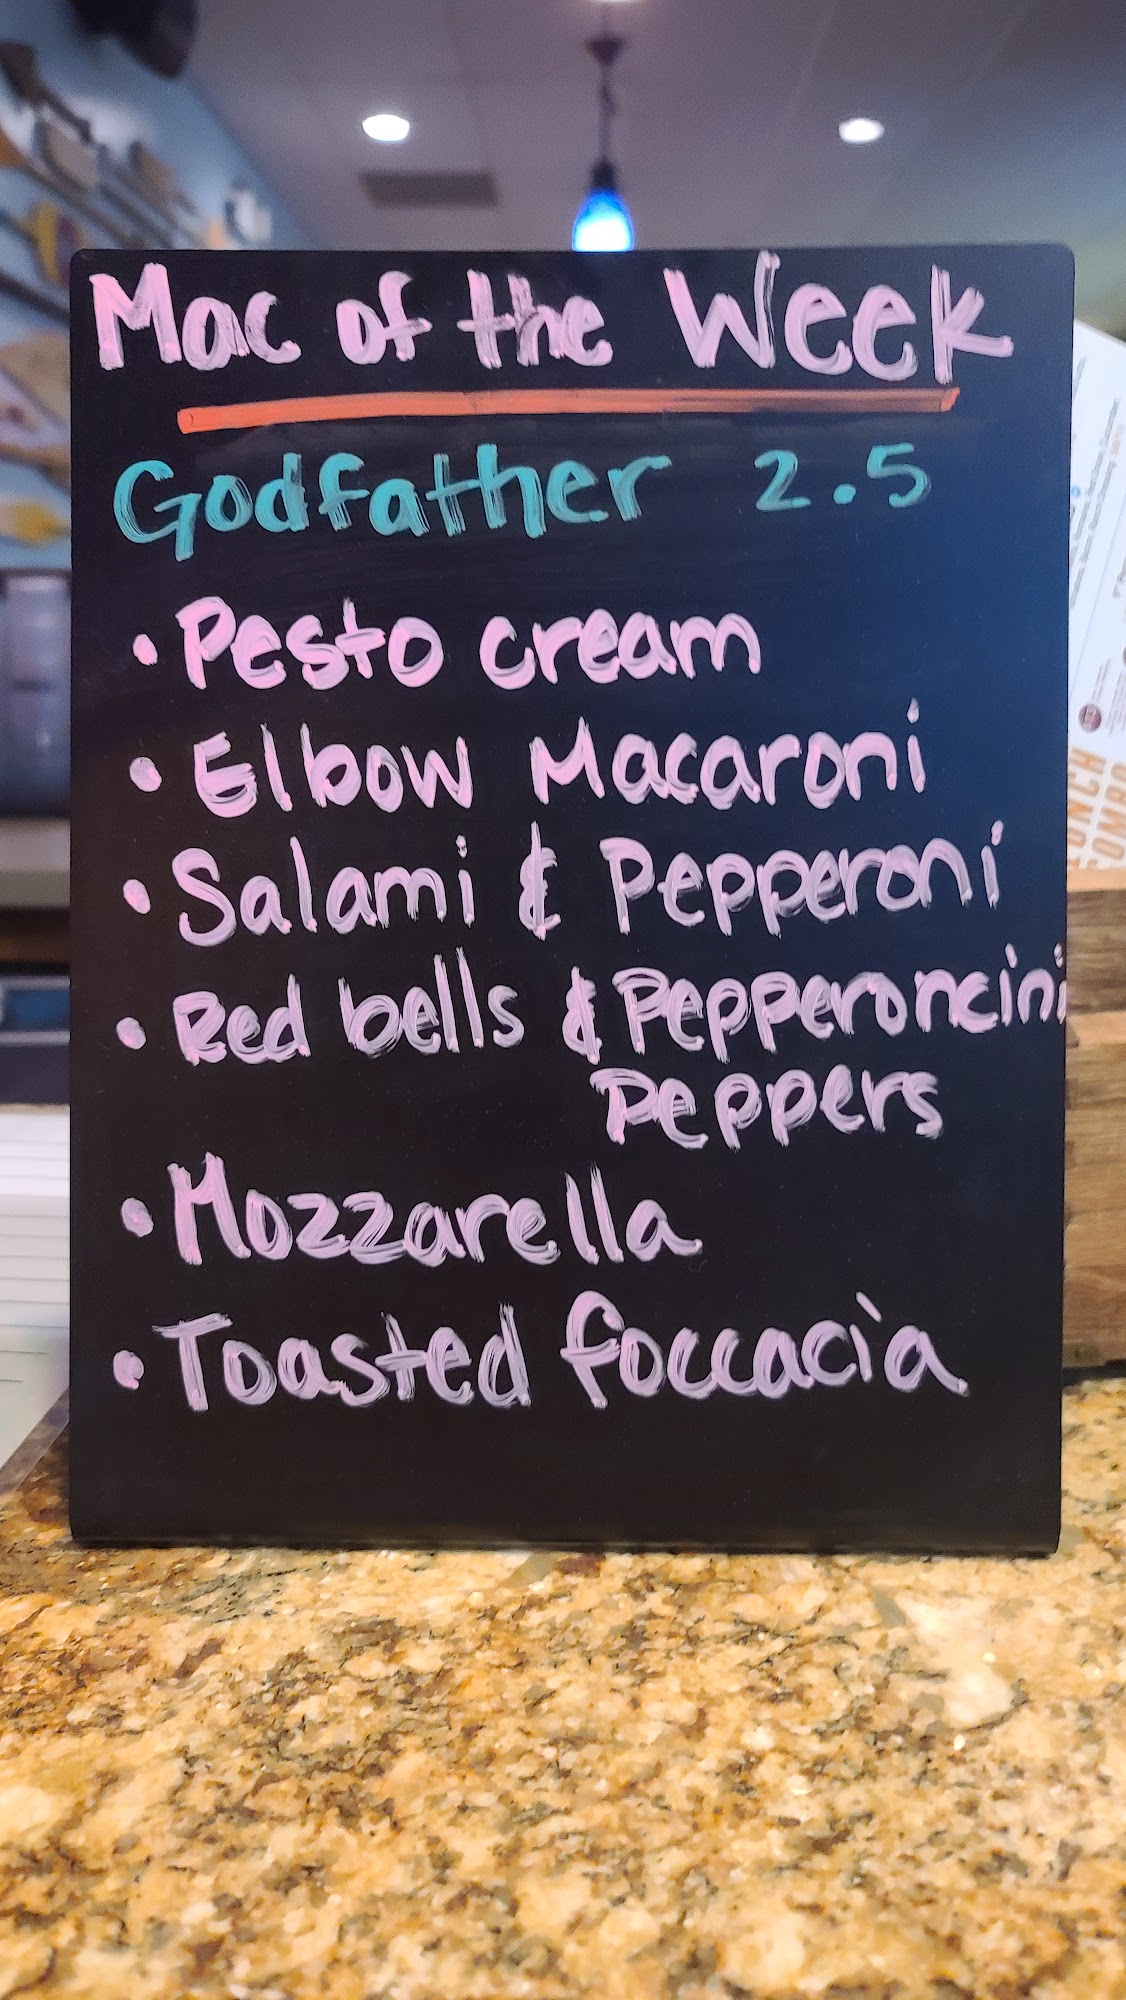 Mac of the Week
Godfather 2.5
• Pesto cream
• Elbow Macaroni
• Salami & Pepperoni
• Red bells & Pepperoncini
Peppers
• Mozzarella
• Toasted foccacia
LUNCH
COMBO